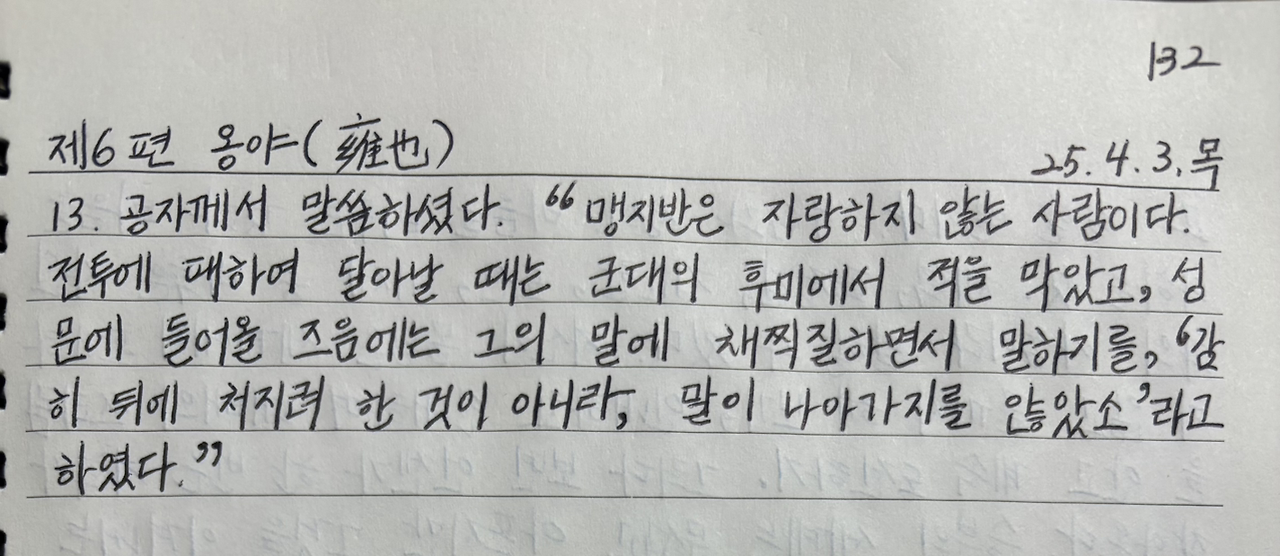 132
제6편 옹야(雍也)
25.4.3.목
13. 공자께서 말씀하셨다. "맹지반은 자랑하지 않는 사람이다.
전투에 패하여 달아날 때는 군대의 후미에서 적을 막았고, 성
문에 들어올 즈음에는 그의 말에 채찍질하면서 말하기를, '감
히 뒤에 처지려 한 것이 아니라, 말이 나아가지를 않았소'라고
하였다."